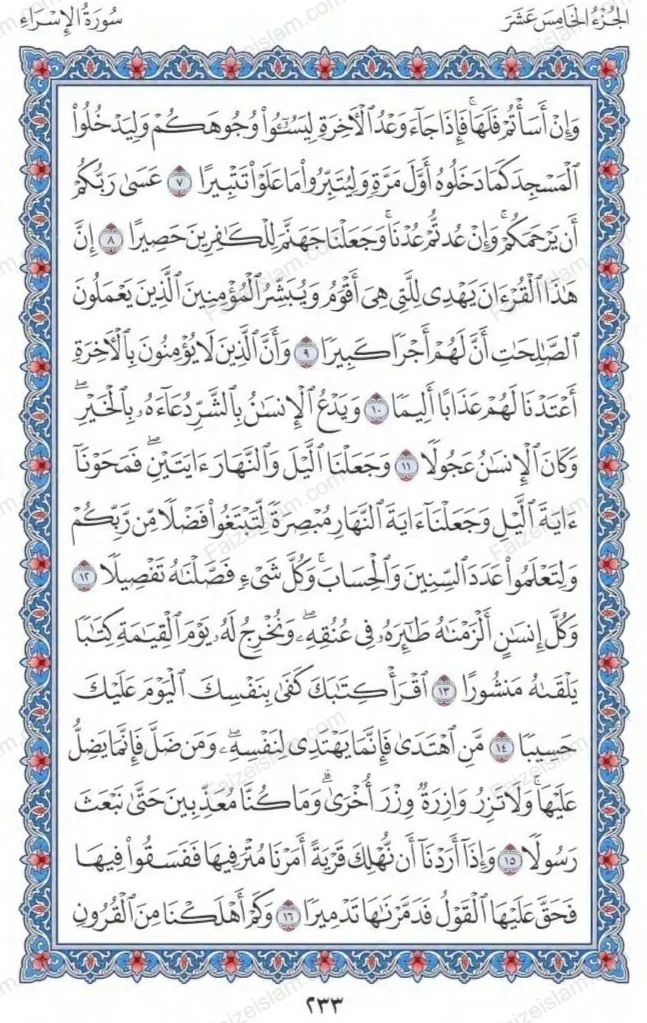 الجُزءُ الخَامِسَ عَشَرَ
سُورَةُ الإِسۡرَاءِ
وَإِنۡ أَسَأۡتُمۡ فَلَهَاۚ فَإِذَا جَآءَ وَعۡدُ ٱلۡأٓخِرَةِ لِيَسُـُٔواْ وُجُوهَكُمۡ وَلِيَدۡخُلُواْ
ٱلۡمَسۡجِدَ كَمَا دَخَلُوهُ أَوَّلَ مَرَّةٖ وَلِيُتَبِّرُواْ مَا عَلَوۡاْ تَتۡبِيرًا ٧ عَسَىٰ رَبُّكُمۡ
أَن يَرۡحَمَكُمۡۚ وَإِنۡ عُدتُّمۡ عُدۡنَاۚ وَجَعَلۡنَا جَهَنَّمَ لِلۡكَٰفِرِينَ حَصِيرًا ٨ إِنَّ
هَٰذَا ٱلۡقُرۡءَانَ يَهۡدِي لِلَّتِي هِيَ أَقۡوَمُ وَيُبَشِّرُ ٱلۡمُؤۡمِنِينَ ٱلَّذِينَ يَعۡمَلُونَ
ٱلصَّٰلِحَٰتِ أَنَّ لَهُمۡ أَجۡرٗا كَبِيرٗا ٩ وَأَنَّ ٱلَّذِينَ لَا يُؤۡمِنُونَ بِٱلۡأٓخِرَةِ
أَعۡتَدۡنَا لَهُمۡ عَذَابًا أَلِيمٗا ١٠ وَيَدۡعُ ٱلۡإِنسَٰنُ بِٱلشَّرِّ دُعَآءَهُۥ بِٱلۡخَيۡرِۖ
وَكَانَ ٱلۡإِنسَٰنُ عَجُولٗا ١١ وَجَعَلۡنَا ٱلَّيۡلَ وَٱلنَّهَارَ ءَايَتَيۡنِۖ فَمَحَوۡنَآ
ءَايَةَ ٱلَّيۡلِ وَجَعَلۡنَآ ءَايَةَ ٱلنَّهَارِ مُبۡصِرَةٗ لِّتَبۡتَغُواْ فَضۡلٗا مِّن رَّبِّكُمۡ
وَلِتَعۡلَمُواْ عَدَدَ ٱلسِّنِينَ وَٱلۡحِسَابَۚ وَكُلَّ شَيۡءٖ فَصَّلۡنَٰهُ تَفۡصِيلٗا ١٢
وَكُلَّ إِنسَٰنٍ أَلۡزَمۡنَٰهُ طَٰٓئِرَهُۥ فِي عُنُقِهِۦۖ وَنُخۡرِجُ لَهُۥ يَوۡمَ ٱلۡقِيَٰمَةِ كِتَٰبٗا
يَلۡقَىٰهُ مَنشُورًا ١٣ ٱقۡرَأۡ كِتَٰبَكَ كَفَىٰ بِنَفۡسِكَ ٱلۡيَوۡمَ عَلَيۡكَ
حَسِيبٗا ١٤ مَّنِ ٱهۡتَدَىٰ فَإِنَّمَا يَهۡتَدِي لِنَفۡسِهِۦۖ وَمَن ضَلَّ فَإِنَّمَا يَضِلُّ
عَلَيۡهَاۚ وَلَا تَزِرُ وَازِرَةٞ وِزۡرَ أُخۡرَىٰۗ وَمَا كُنَّا مُعَذِّبِينَ حَتَّىٰ نَبۡعَثَ
رَسُولٗا ١٥ وَإِذَآ أَرَدۡنَآ أَن نُّهۡلِكَ قَرۡيَةً أَمَرۡنَا مُتۡرَفِيهَا فَفَسَقُواْ فِيهَا
فَحَقَّ عَلَيۡهَا ٱلۡقَوۡلُ فَدَمَّرۡنَٰهَا تَدۡمِيرٗا ١٦ وَكَمۡ أَهۡلَكۡنَا مِنَ ٱلۡقُرُونِ
٢٣٣
Faizeislam.com